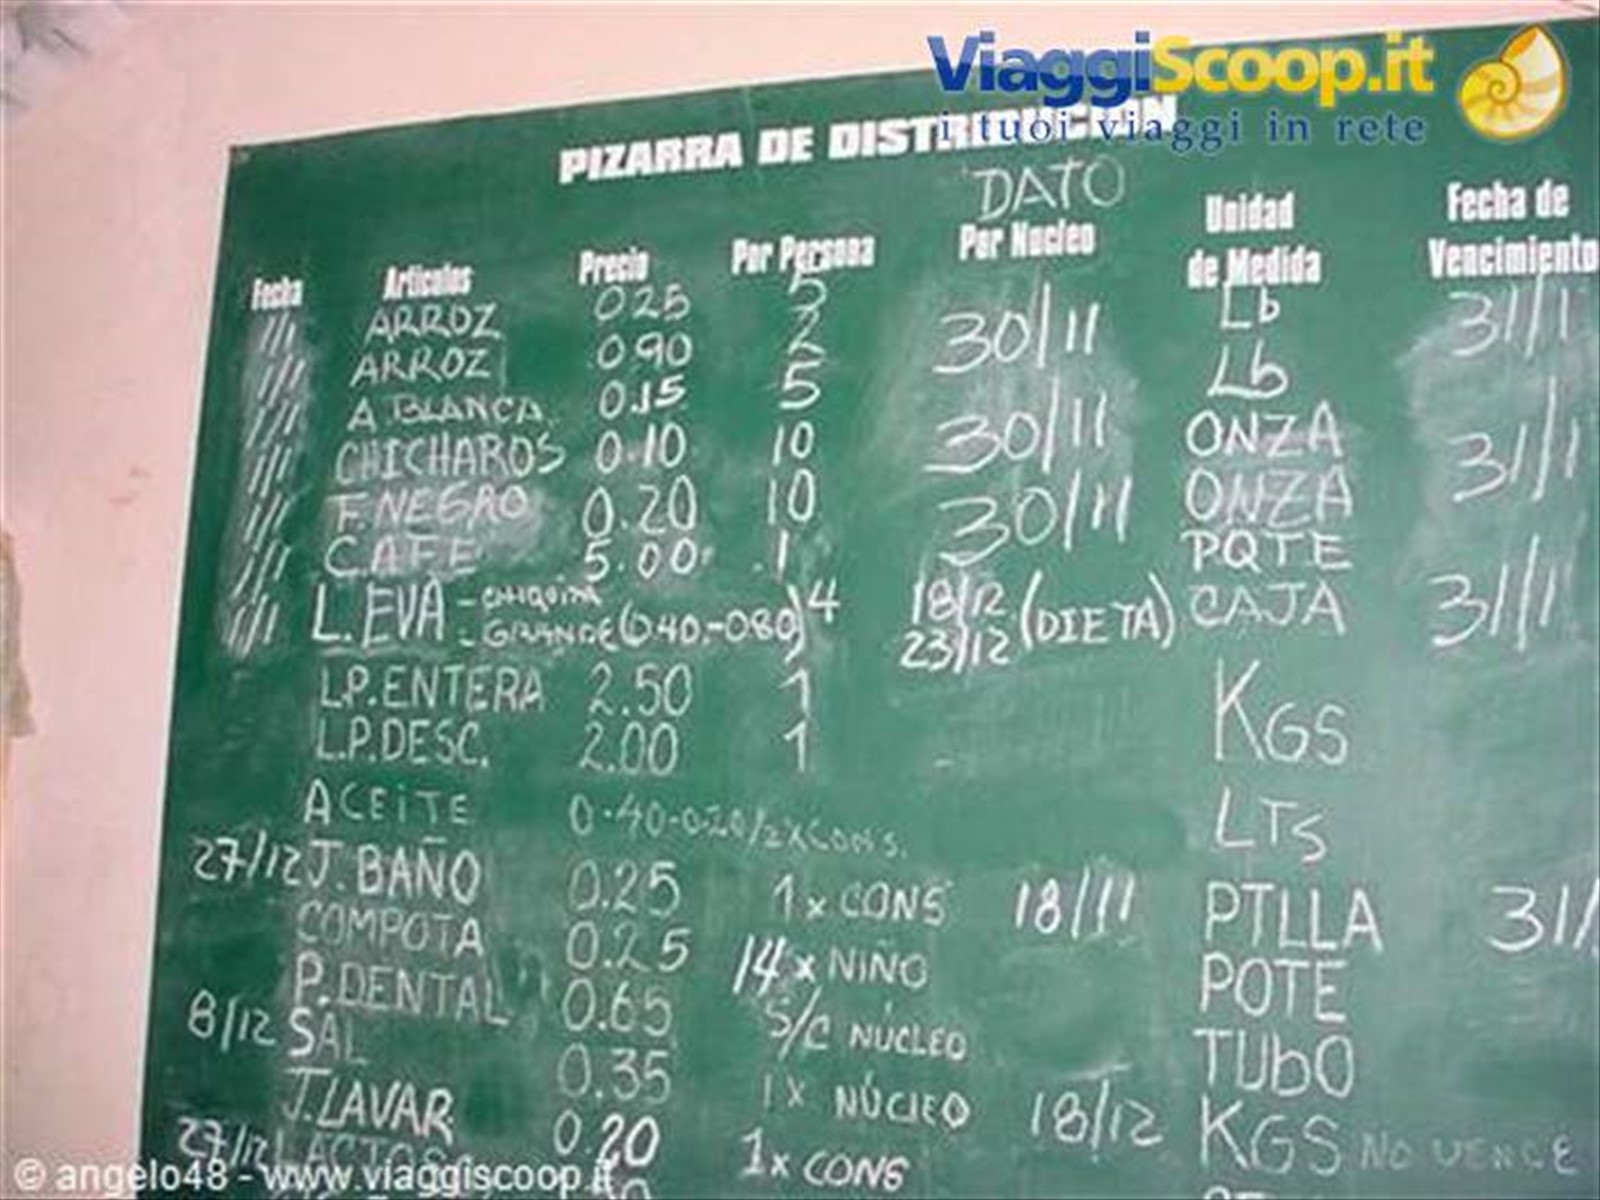 ViaggiScoop.it
i tuoi viaggi in rete
PIZARRA DE DISTRIBUCION
DATO
Fecha Articulos Precio Por Persona Por Nucleo Unidad de Medida Fecha de Vencimiento
/// ARROZ 025 5 30/11 Lb 31/1
/// ARROZ 090 2 Lb
/// A.BLANCA 0.15 5 30/11 ONZA 31/1
/// CHICHAROS 0.10 10 ONZA
/// F.NEGRO 0.20 10 30/11 PQTE
/// CAFE 5.00 1 CAJA 31/1
L.EVA - CHIQUITA - GRANDE (040-080) 4 18/12 23/12 (DIETA)
L.P.ENTERA 2.50 1 KGS
L.P.DESC. 2.00 1
ACEITE 0.40-0.20/2XCONS. LTS
27/12 J.BAÑO 0.25 1 x CONS 18/11 PTLLA 31/
COMPOTA 0.25 14 x NIÑO POTE
P.DENTAL 0.65 S/C NÚCLEO TUbO
8/12 SAL 0.35 1 X NÚCLEO 18/12 KGS NO VENCE
J.LAVAR 0.20 1x CONS
27/12 LACTOSA
© angelo48 - www.viaggiscoop.it